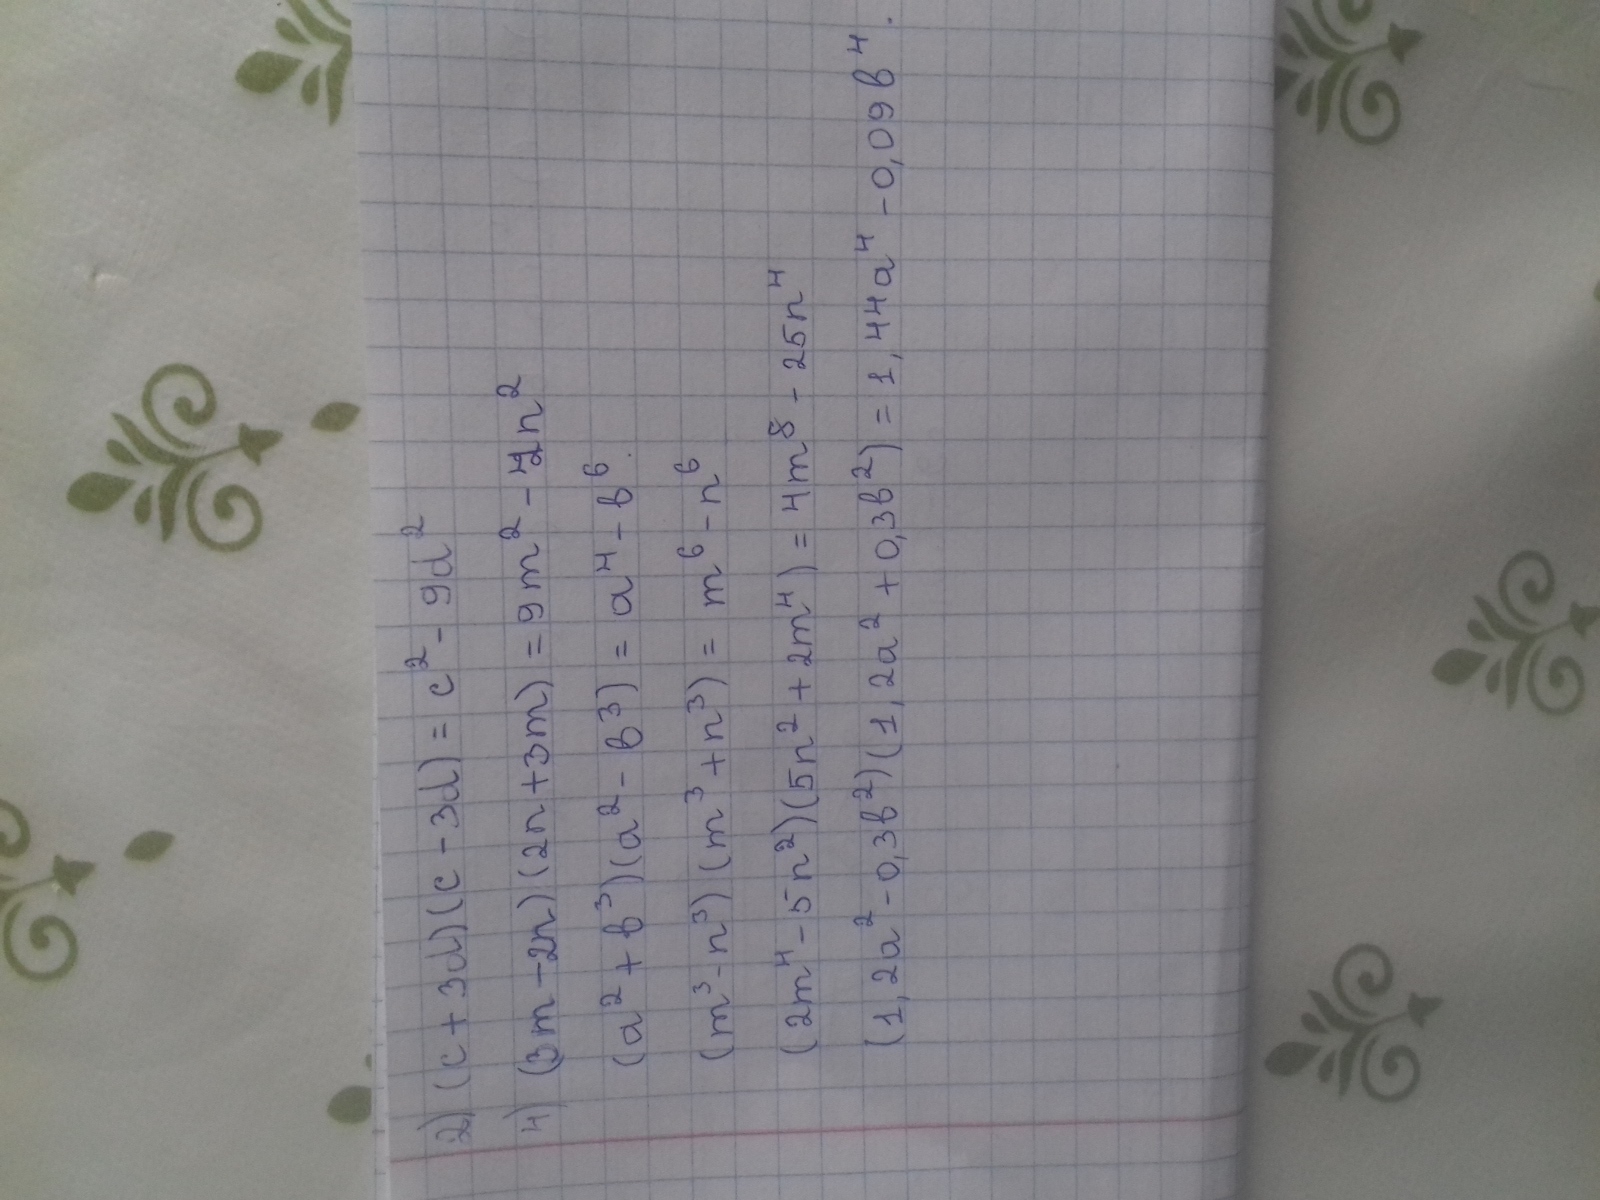 2) (c + 3d)(c - 3d) = c² - 9d²
4) (3m - 2n)(2n + 3m) = 9m² - 4n²
(a² + b³)(a² - b³) = a⁴ - b⁶.
(m³ - n³)(m³ + n³) = m⁶ - n⁶
(2m⁴ - 5n²)(5n² + 2m⁴) = 4m⁸ - 25n⁴
(1,2a² - 0,3b²)(1,2a² + 0,3b²) = 1,44a⁴ - 0,09b⁴.